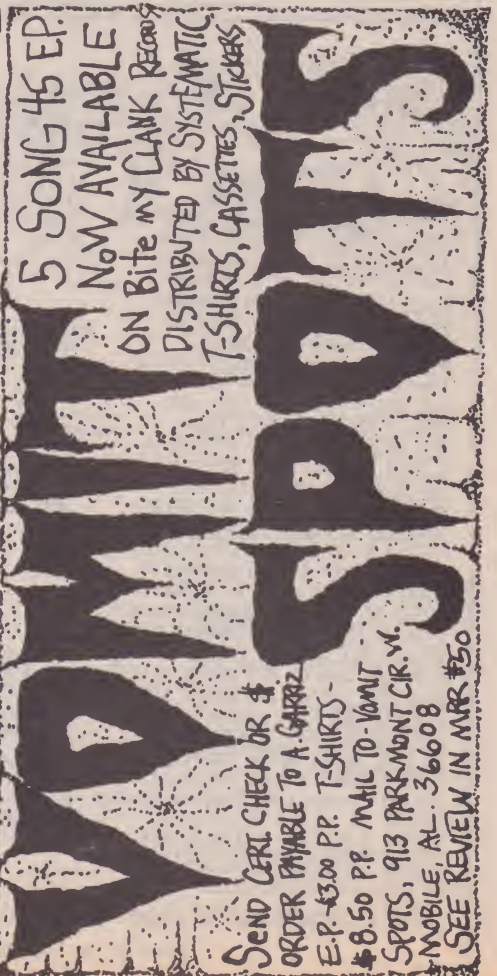 VOMIT
5 SONG 45 EP.
NOW AVAILABLE
ON Bite my CLANK RECORDS
DISTRIBUTED BY SYSTEMATIC
T-SHIRTS, CASSETTES, STICKERS
SPOTS
SEND CERT. CHECK OR $
ORDER PAYABLE TO A.
E.P.-$3.00 P.P. T-SHIRTS-
$8.50 P.P. MAIL TO-VOMIT
SPOTS, 913 PARKMONT CIR. W.
MOBILE, AL. 36608
SEE REVIEW IN MRR #50